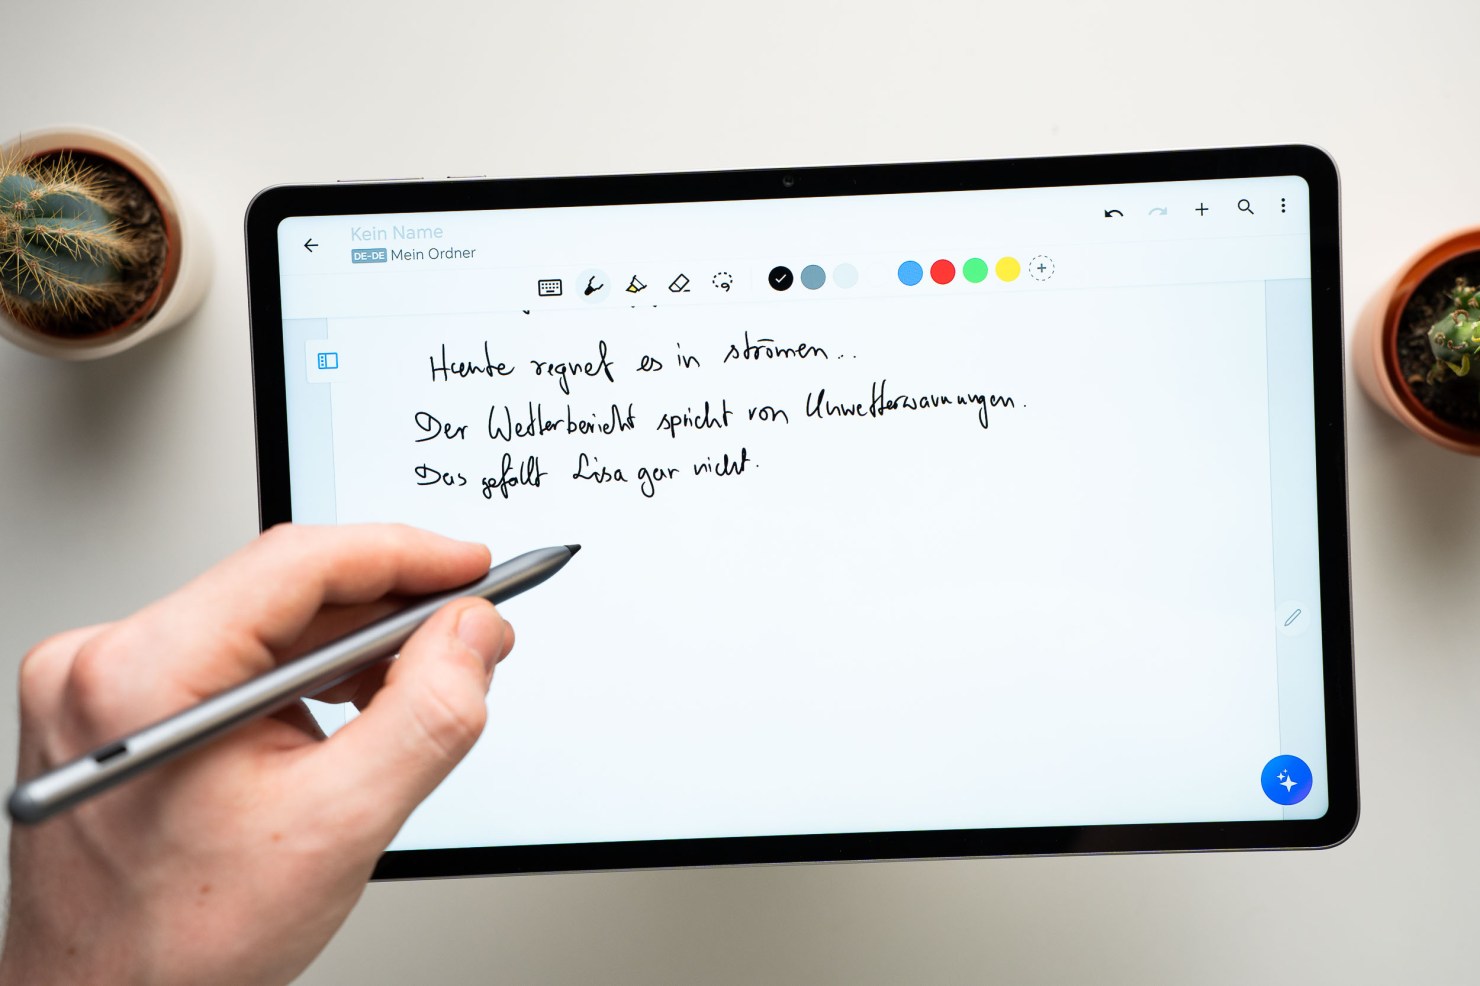 Kein Name
DE-DE Mein Ordner
Heute regnet es in strömen..
Der Wetterbericht spricht von Unwetterwarnungen.
Das gefällt Lisa gar nicht.